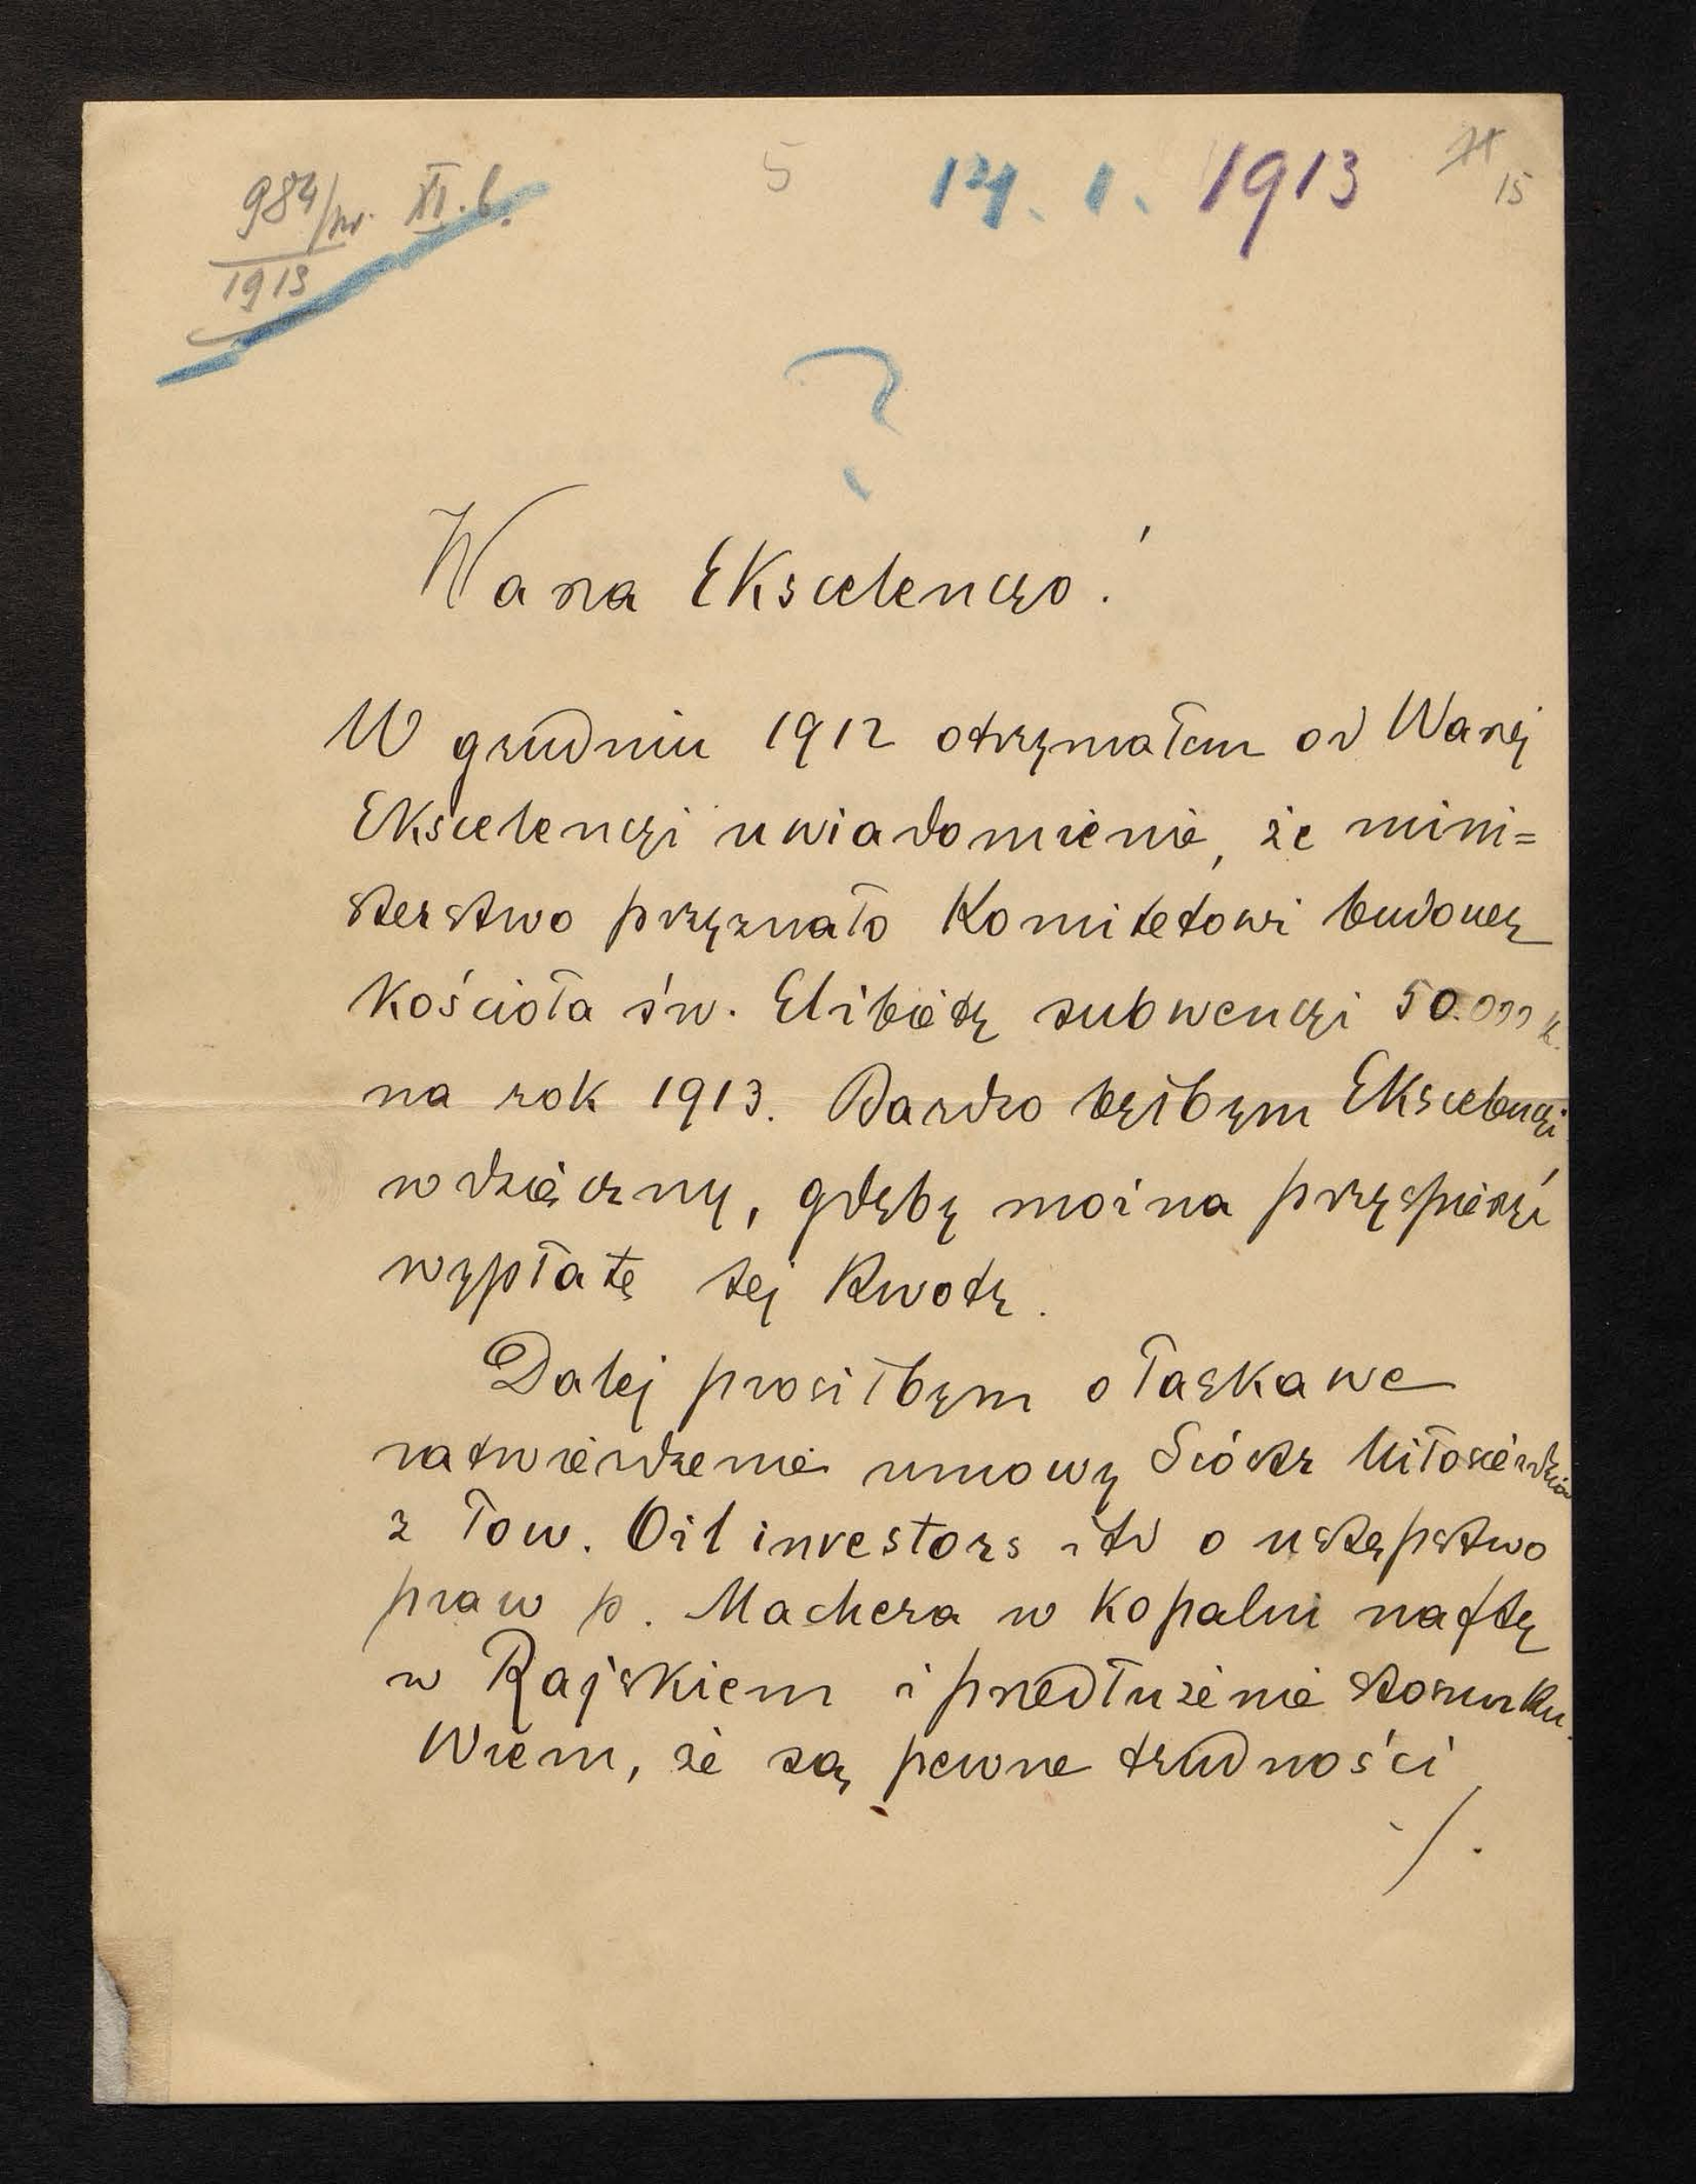 984/pr. XI. b.
1913
5
14. 1. 1913
15
?
Wasza Ekscelencyo!
W grudniu 1912 otrzymałem od Waszej
Ekscelencyi uwiadomienie, że mini=
sterstwo przyznało Komitetowi budowy
Kościoła św. Elżbiety subwencyi 50.000 k.
na rok 1913. Bardzo byłbym Ekscelencyi
wdzięczny, gdyby można przyspieszyć
wypłatę tej kwoty.
Dalej prosiłbym o łaskawe
zatwierdzenie umowy Sióstr Miłosierdzia
z Tow. Oil investors itd o ustępstwo
praw p. Machera w kopalni nafty
w Rajskiem i przedłużenie stosunku.
Wiem, że są pewne trudności
./.